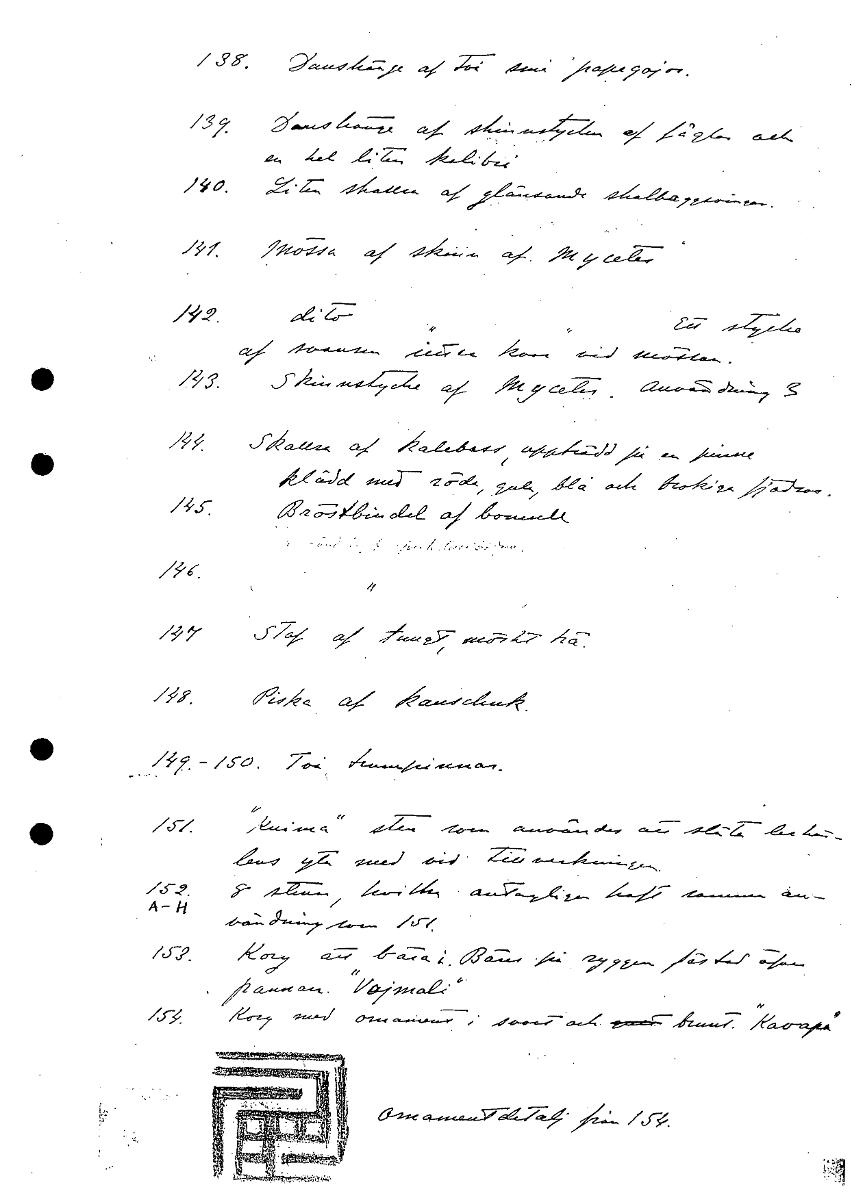 138. Danshänge af två små papegojor.
139. Danshänge af skinnstycken af fåglar och
en hel liten kolibri
140. Liten skallra af glänsande skalbaggsvingar.
141. Mössa af skinn af Mycetes
142. dito " " Ett stycke
af svansen sitter kvar vid mössan.
143. Skinnstycke af Mycetes. Användning ?
144. Skallra af kalebass, uppträdd på en pinne
klädd med röda, gula, blå och brokiga fjädrar.
145. Bröstbindel af bomull
146. "
147 Staf af tungt, mörkt trä.
148. Piska af kauschuk.
149.-150. Två trumpinnar.
151. "Kuima" sten som användes att släta lerkär-
lens yta med vid tillverkningen
152. 8 stenar, hvilka antagligen haft samma an-
A-H
vändning som 151.
153. Korg att bära i. Bäres på ryggen fästad öfver
pannan. "Vajmali"
154. Korg med ornament i svart och brunt. "Kavapa"
Ornamentdetalj från 154.